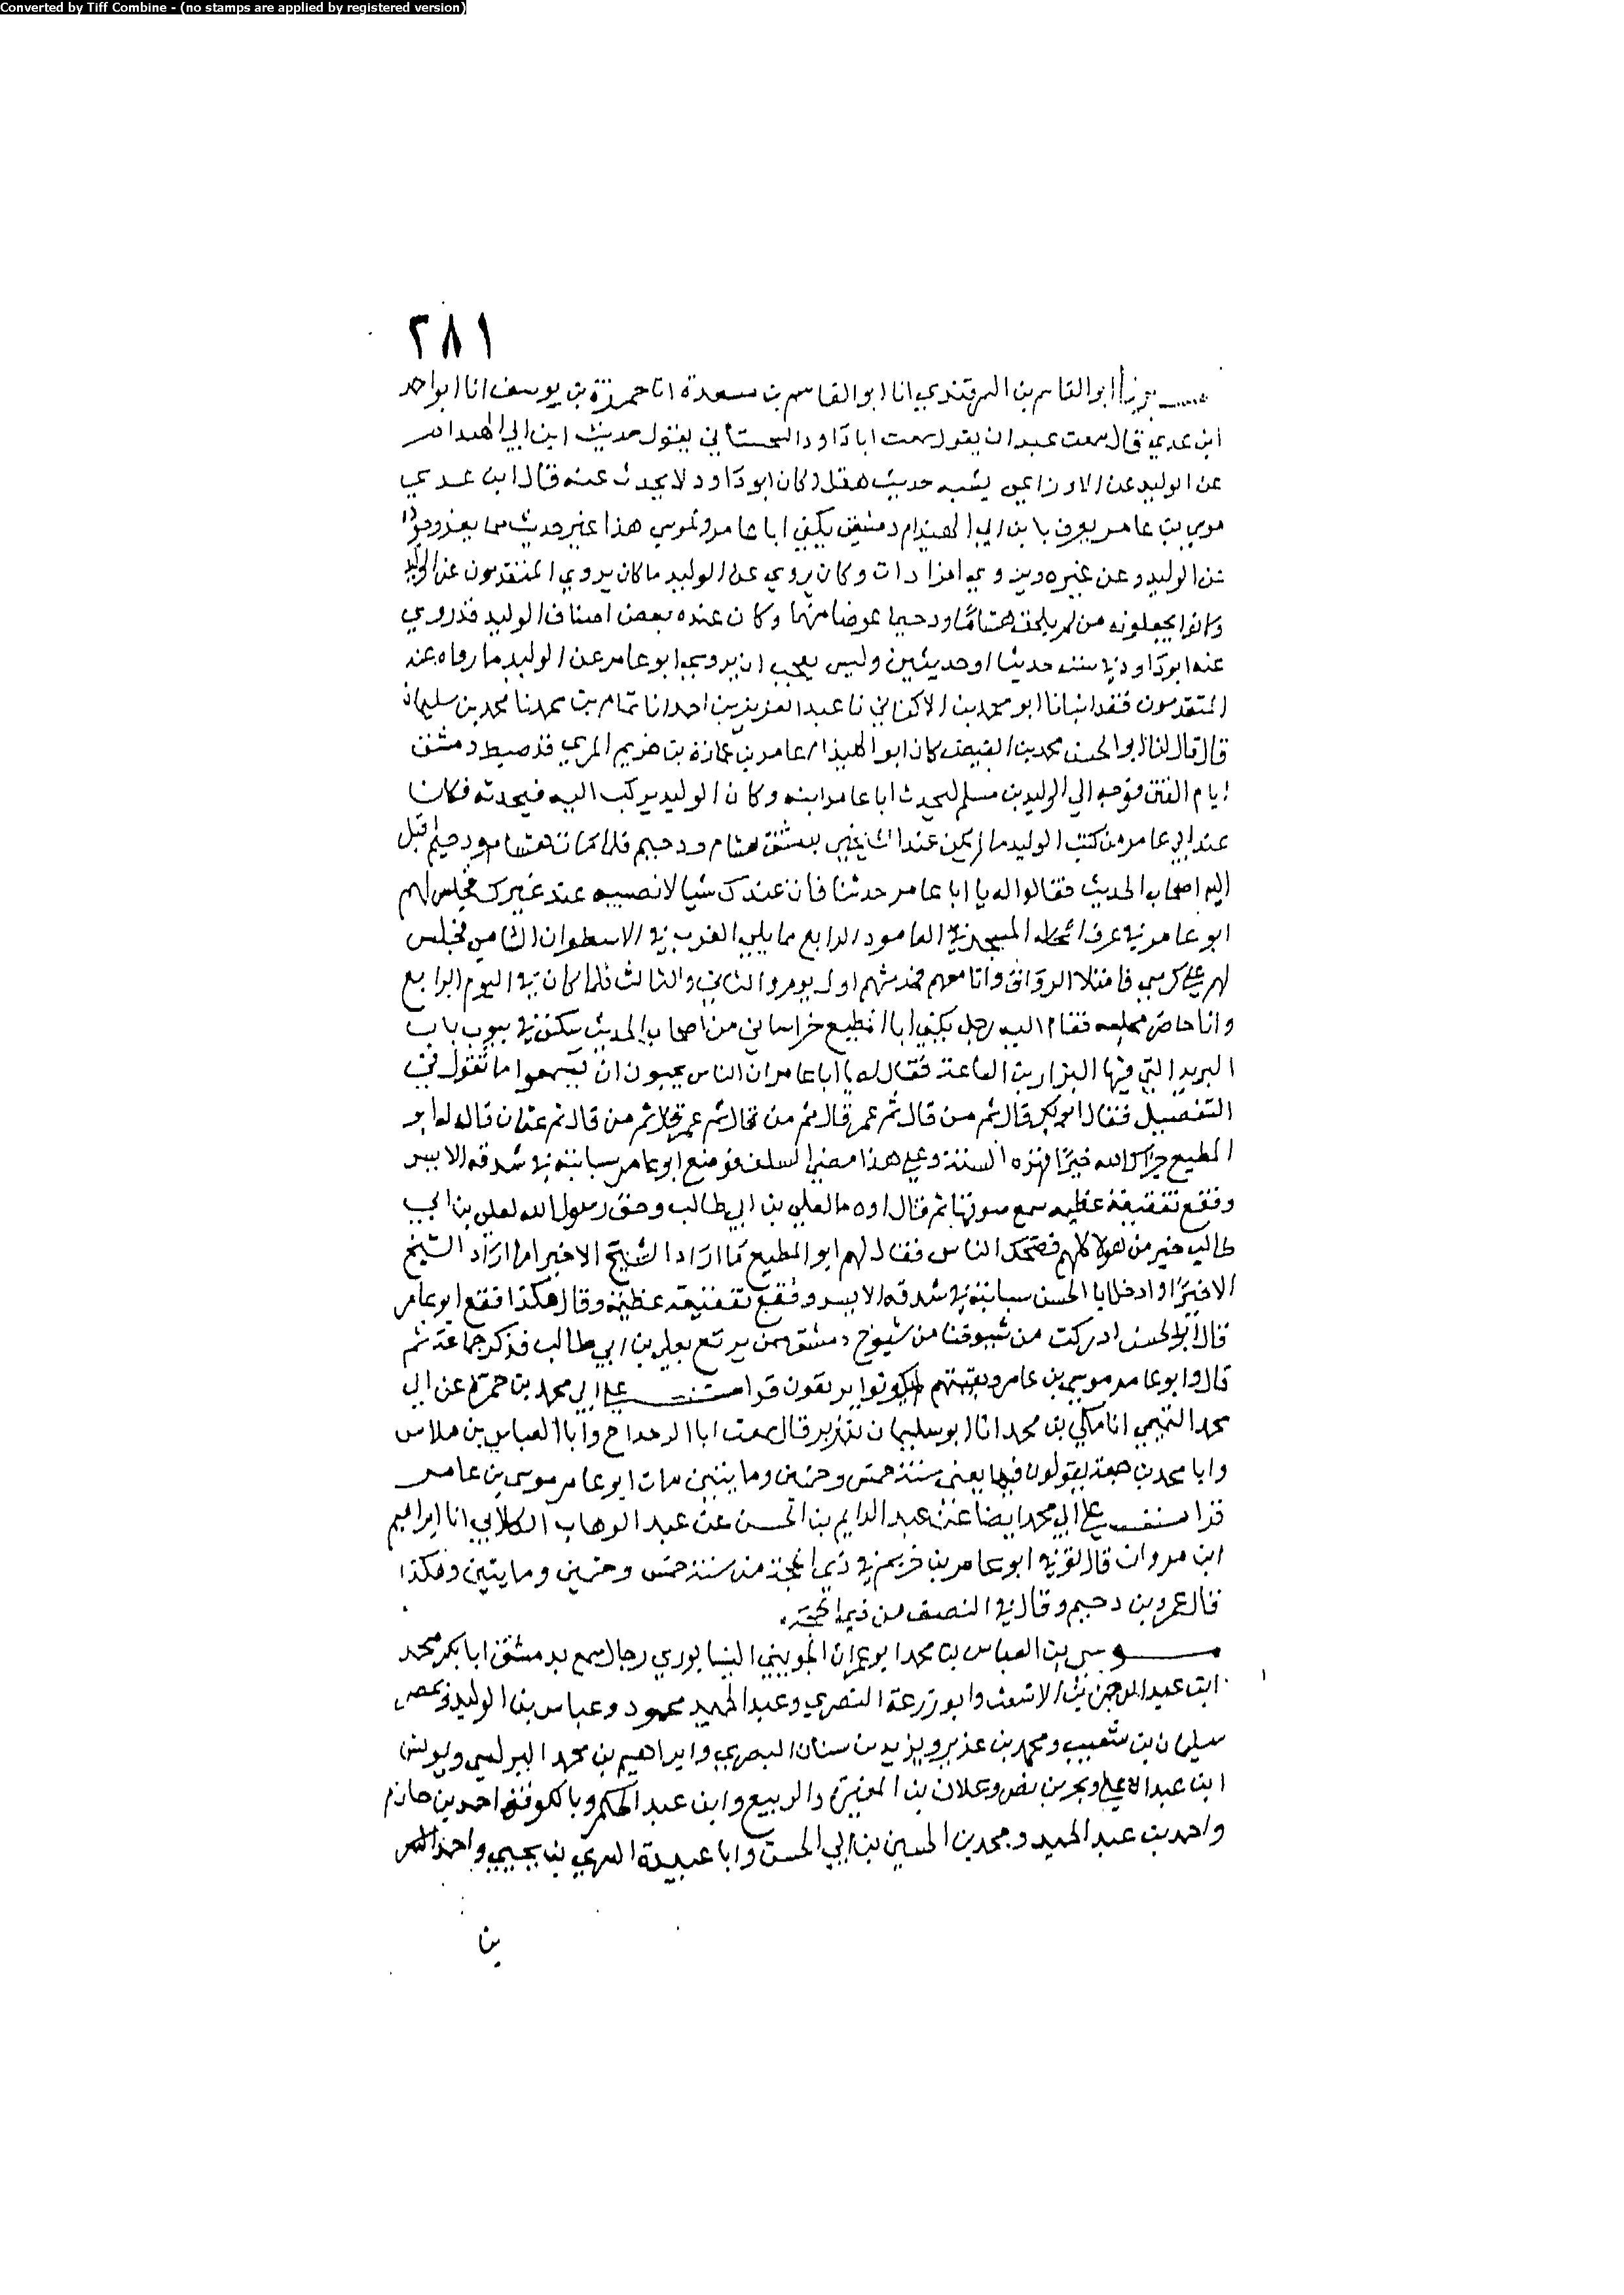 Converted by Tiff Combine - (no stamps are applied by registered version)
٢٨١
اخبرنا ابو القاسم بن السمرقندي انا ابو القاسم بن مسعدة انا حمزة بن يوسف انا ابو احمد
ابن عدي قال سمعت عبدان يقول سمعت ابا داود السجستاني يقول حديث ابن ابي الهيذام
عن الوليد عن الاوزاعي يشبه حديث هقل وكان ابو داود لا يحدث عنه قال ابن عدي
موسى بن عامر يعرف بابن ابي الهيذام دمشقي يكنى ابا عامر ولموسى هذا غير حديث مما يعز وجوده
عن الوليد وعن غيره ويروي افرادات وكان يروي عن الوليد ما كان يروي المتقدمون عن الوليد
وكانوا يجعلونه من لم يلحق هشاما ودحيما عوضا منهما وكان عنده بعض اصناف الوليد قد روى
عنه ابو داود في سننه حديثا او حديثين وليس يعجب ان يروي ابو عامر عن الوليد ما رواه عنه
المتقدمون فقد انبانا ابو محمد بن الاكفاني نا عبد العزيز بن احمد انا تمام بن محمد نا محمد بن سليمان
قال قال لنا ابو الحسن محمد بن الفيض كان ابو الهيذام عامر بن عمارة بن خريم المري قد ضبط دمشق
ايام الفتن فوجه الى الوليد بن مسلم ليحدث ابا عامر ابنه وكان الوليد يركب اليه فيحدثه فكان
عند ابي عامر من كتب الوليد ما لم يكن عند الشيخين بدمشق هشام ودحيم فلما مات هشام ودحيم اقبل
اليه اصحاب الحديث فقالوا له يا ابا عامر حدثنا فان عندك شيا لا نصيبه عند غيرك فجلس لهم
ابو عامر في المسجد في العامود الرابع مما يلي الغرب في الاسطوان الثامن فجلس
لهم على كرسي فامتلا الرواق وانا معهم فحدثهم اول يوم والثاني والثالث فلما كان في اليوم الرابع
وانا حاضر مجلسه فقام اليه رجل يكنى ابا المطيع خراساني من اصحاب الحديث يسكن في بيوت باب
البريد التي فيها البزازين الساعة فقال له يا ابا عامر ان الناس يحبون ان يسمعوا ما تقول في
التفضيل فقال ابو بكر قال ثم من قال ثم عمر قال ثم من قال ثم عمر قال ثم من قال ثم عثمان قال له ابو
المطيع جزاك الله خيرا فهذه السنة وعلى هذا مضى السلف فوضع ابو عامر سبابته في شدقه الايسر
وفقع تفقيعة عظيمه سمع صوتها ثم قال اوه ما لعلي بن ابي طالب وحق رسول الله لعلي بن ابي
طالب خير من هولا كلهم فضحك الناس فقال لهم ابو المطيع ما اراد الشيخ الا خيرا ما اراد الشيخ
الا خيرا وادخل ابا الحسن سبابته في شدقه الايسر وفقع تفقيعة عظيمة وقال هكذا فقع ابو عامر
قال ابو الحسن ادركت من شيوخنا من شيوخ دمشق ممن يربع بعلي بن ابي طالب فذكر جماعة ثم
قال وابو عامر موسى بن عامر وبقيتهم لم يكونوا يربعون قرات على ابي محمد بن حمزة عن ابي
محمد التميمي انا مكي بن محمد انا ابو سليمان بن زبر قال سمعت ابا الدحداح وابا العباس بن ملاس
وابا محمد بن جمعة يقولون فيها يعني سنة خمس وخمسين وماتين مات ابو عامر موسى بن عامر
قرات على ابي محمد ايضا عن عبد الدايم بن الحسن عن عبد الوهاب الكلابي انا ابراهيم
ابن مروان قال توفي ابو عامر بن خريم في ذي الحجة من سنة خمس وخمسين ومايتين وهكذا
قال عمرو بن دحيم وقال في النصف من ذي الحجة
موسى بن العباس بن محمد ابو عمران الجويني النيسابوري رحال سمع بدمشق ابا بكر محمد
ابن عبد الرحمن بن الاشعث وابو زرعة النصري وعبد الحميد محمود وعباس بن الوليد وبمصر
سليمان بن شعيب ومحمد بن عزيز ويزيد بن سنان البصري وابراهيم بن محمد البرلسي ويونس
ابن عبد الاعلى وبحر بن نصر وعلان بن المغيرة والربيع وابن عبد الحكم وبالكوفة احمد بن حازم
واحمد بن عبد الحميد ومحمد بن الحسين بن ابي الحسن وابا عبيدة السري بن يحيى واحمد
بن